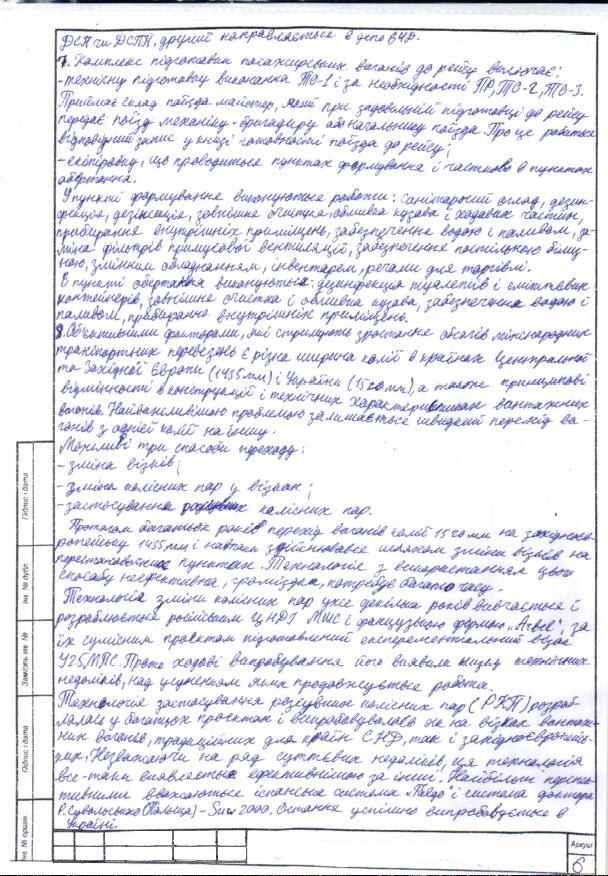 ДСП чи ДСПП, другий направляється в депо ВЧД.
7. Комплекс підготовки пасажирських вагонів до рейсу включає:
- технічну підготовку виконання ТО-1 і за необхідності ПР, ТО-2, ТО-3.
Приймає склад поїзда майстер, який при задовільній підготовці до рейсу
передає поїзд механіку-бригадиру або начальнику поїзда. Про це робиться
відповідний запис у книзі готовності поїзда до рейсу;
- екіпіровку, що проводиться пунктах формування і частково в пунктах
обертання.
У пункті формування виконуються роботи: санітарний огляд, дезин-
фекція, дезінсекція, зовнішня очистка, обмивка кузова і ходових частин,
прибирання внутрішніх приміщень, забезпечення водою і паливом, за-
міна фільтрів примусової вентиляції, забезпечення постільною біліз-
ною, змінним обладнанням, інвентарем, речами для торгівлі.
В пункті обертання виконуються: дезинфекція туалетів і сміттєвих
контейнерів, зовнішня очистка і обмивка кузова, забезпечення водою і
паливом, прибирання внутрішніх приміщень.
8. Об'єктивними факторами, які стримують зростання обсягів міжнародних
транспортних перевезень є різна ширина колії в країнах Центральної
та Західної Європи (1435 мм) і України (1520 мм), а також принципові
відмінності в конструкції і технічних характеристиках вантажних
вагонів. Найважливішою проблемою залишається швидкий перехід ва-
гонів з однієї колії на іншу.
Можливі три способи переходу:
- зміна візків;
- зміна колісних пар у візках;
- застосування розсувних колісних пар.
Протягом багатьох років перехід вагонів колії 1520 мм на західноєв-
ропейську 1435 мм і навпаки здійснювався шляхом зміни візків на
перестановочних пунктах. Технологія з використанням цього
способу неефективна, громіздка, потребує багато часу.
Технологія зміни колісних пар уже декілька років вивчається і
розробляється російським ЦНДІ МШС і французькою фірмою за
їх сумісним проєктом підготовлений експерементальний візок
У25МПС. Проте ходові випробування його виявили низку технічних
недоліків, над усуненням яких продовжується робота.
Технологія застосування розсувних колісних пар (РКП) розроб-
лялась у багатьох проєктах і випробовувалась як на візках вантаж-
них вагонів, традиційних для країн СНД, так і західноєвропейсь-
ких. Незважаючи на ряд суттєвих недоліків, ця технологія
все-таки виявляється ефективнішою за інші. Найбільш перспек-
тивними вважаються іспанська система і система доктора
Р. Сувальського (Польща) - Suw 2000. Остання успішно випробовується в
Україні.
Підпис і дата
Інв. № дубл.
Замість інв. №
Підпис і дата
Інв. № оригін.
Аркуш
6